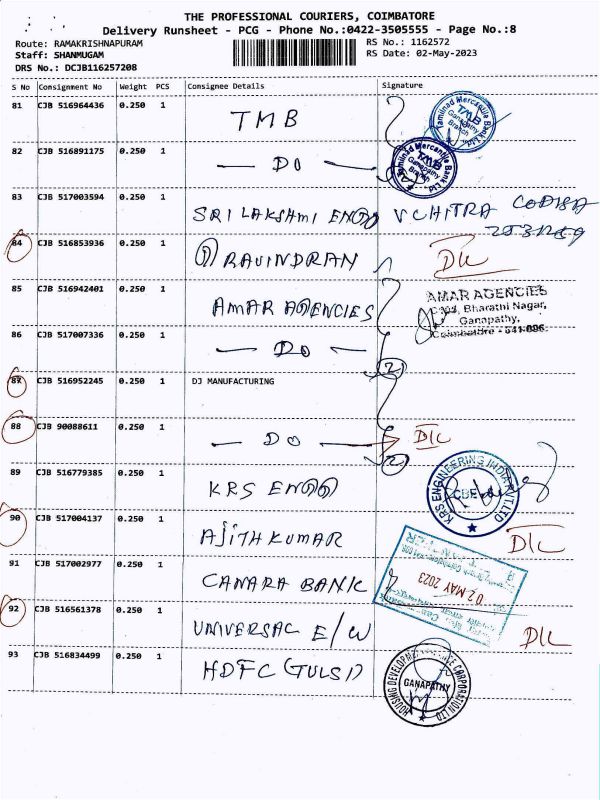 THE PROFESSIONAL COURIERS, COIMBATORE
Delivery Runsheet - PCG - Phone No.:0422-3505555 - Page No.:8
Route: RAMAKRISHNAPURAM RS No.: 1162572
Staff: SHANMUGAM RS Date: 02-May-2023
DRS No.: DCJB116257208
S No Consignment No Weight PCS Consignee Details Signature
81 CJB 516964436 0.250 1 TMB
Tamilnad Mercantile Bank Ltd. TMB Ganapathy Branch
82 CJB 516891175 0.250 1 — DO —
Tamilnad Mercantile Bank Ltd. TMB Ganapathy Branch
83 CJB 517003594 0.250 1 SRI LAKSHMI ENGG V CHITRA
84 CJB 516853936 0.250 1 RAVINDRAN D/L
85 CJB 516942401 0.250 1 AMAR AGENCIES
AMAR AGENCIES
Bharathi Nagar,
Ganapathy,
Coimbatore - 641 006.
86 CJB 517007336 0.250 1 — DO — 2
87 CJB 516952245 0.250 1 DJ MANUFACTURING
88 CJB 90088611 0.250 1 — DO — D/L
2
89 CJB 516779385 0.250 1 KRS ENGG
KRS ENGINEERING INDIA PVT LTD CBE
90 CJB 517004137 0.250 1 AJITH KUMAR D/L
91 CJB 517002977 0.250 1 CANARA BANK
02 MAY 2023
92 CJB 516561378 0.250 1 UNIVERSAL E/W D/L
93 CJB 516834499 0.250 1 HDFC (TULSI)
HOUSING DEVELOPMENT FINANCE CORPORATION LTD GANAPATHY